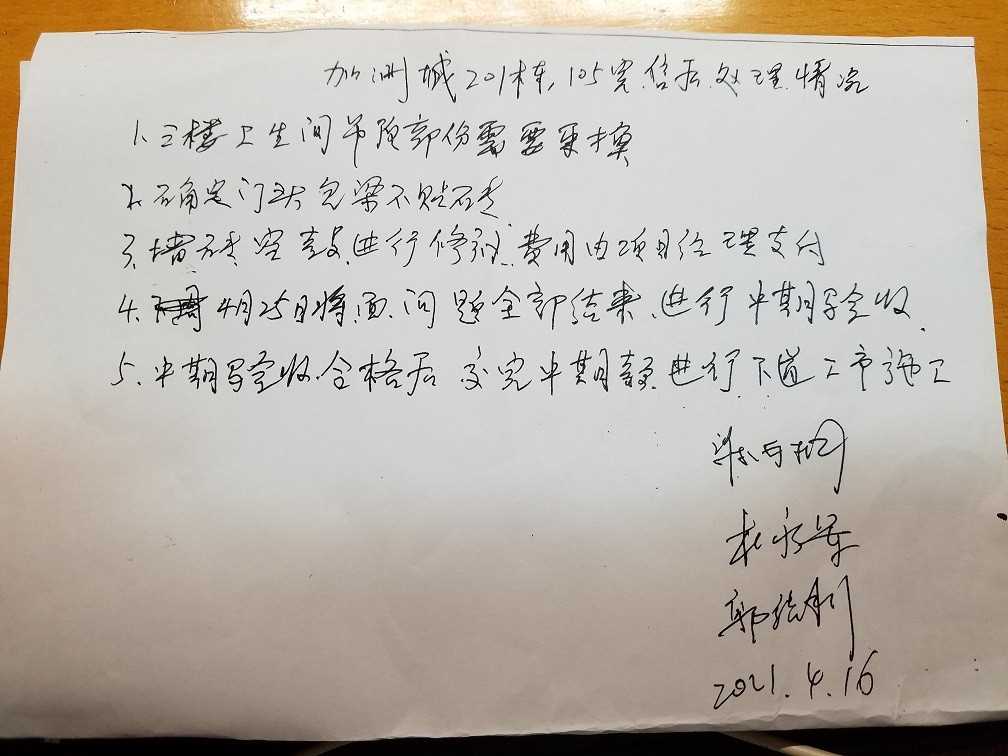 加洲城201栋,105完售后处理情况
1.三楼卫生间吊顶部份需要更换
2.确定门头包梁不贴砖
3.墙砖空鼓进行修补费用由项目经理支付
4.4月25日将面问题全部结束,进行中期验收.
5.中期验收合格后交完中期款进行下道工序施工
2021.4.16